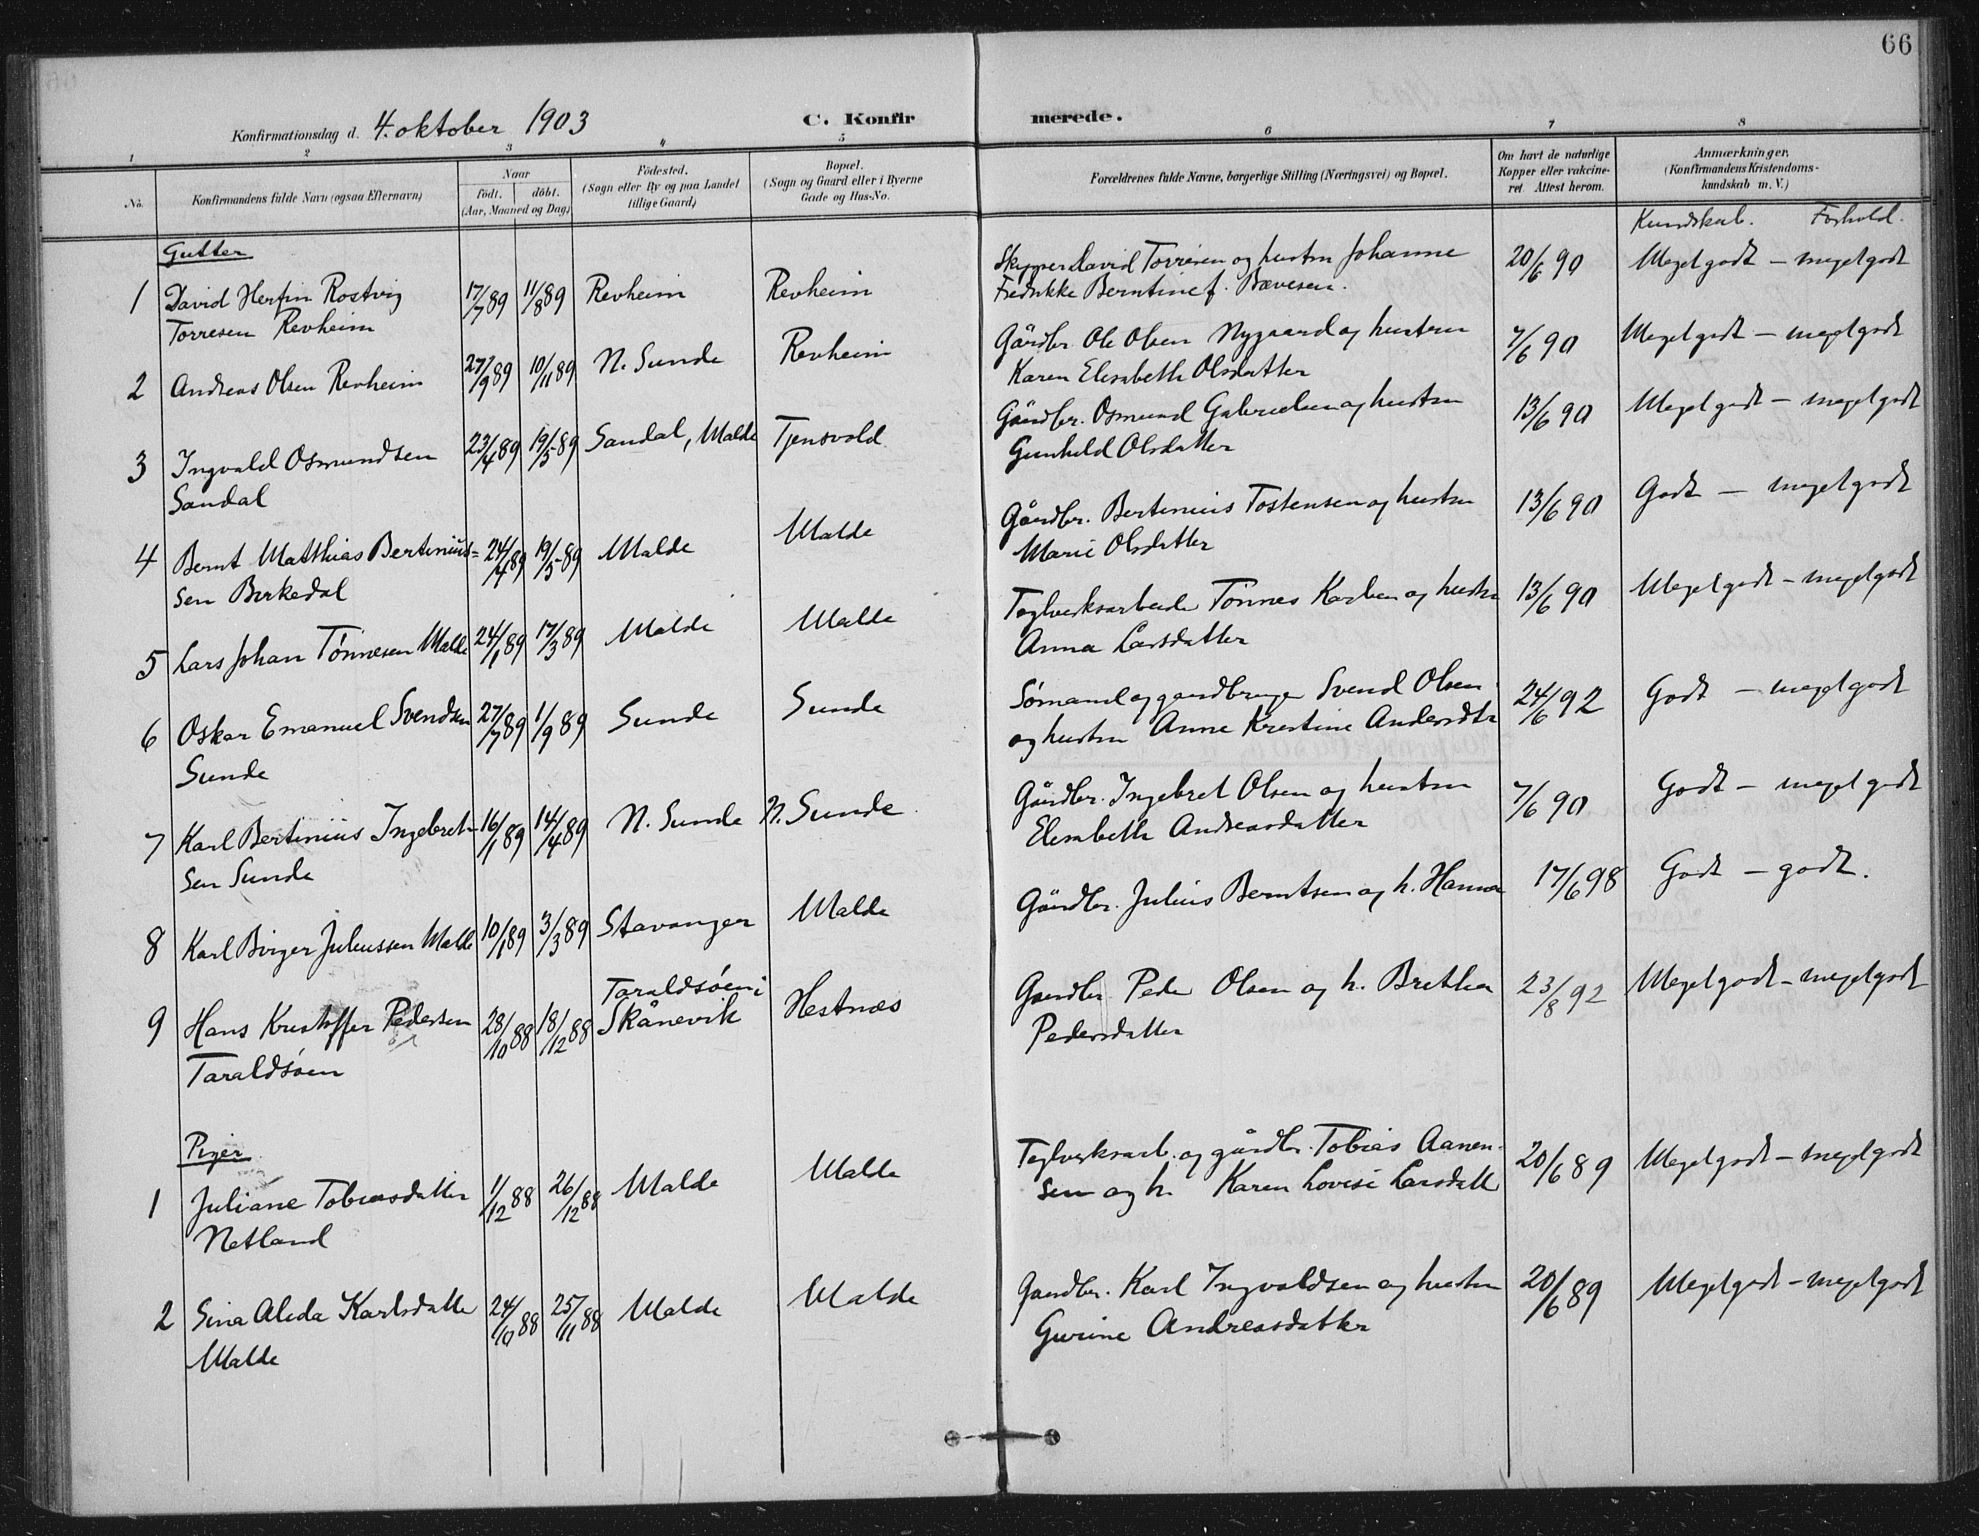 66
Konfirmationsdag d. 4. oktober 1903
C. Konfir merede.
1 2 3 4 5 6 7 8
No.
Konfirmandens fulde Navn (ogsaa Efternavn)
Naar
født. døbt.
(Aar, Maaned og Dag)
Födested.
(Sogn eller By og paa Landet
tillige Gaard)
Bopæl.
(Sogn og Gaard eller i Byerne
Gade og Hus-No.
Forældrenes fulde Navne, borgerlige Stilling (Næringsvei) og Bopæl.
Om havt de naturlige
Kopper eller vakcine-
ret. Attest herom.
Anmærkninger.
(Konfirmandens Kristendoms-
kundskab m. V.)
Kundskab. Forhold.
Gutter
1 David Herfin Rostvig 17/7 89 11/8 89 Revheim Revheim Skipper David Torresen og hustru Johanne 20/6 90 Meget godt – meget godt
Torresen Revheim Fredrikke Berntine f.
2 Andreas Olsen Revheim 27/9 89 10/11 89 N. Sunde Revheim Gårdbr. Ole Olsen Nygaard og hustru 7/6 90 Meget godt – meget godt
Karen Elisabeth Olsdatter
3 Ingvald Osmundsen 23/4 89 19/5 89 Sandal, Malde Tjensvold Gårdbr. Osmund Gabrielsen og hustru 13/6 90 Meget godt – meget godt
Sandal Gunhild Olsdatter
4 Bernt Matthias Bertinius= 24/4 89 19/5 89 Malde Malde Gårdbr. Bertinius Tostensen og hustru 13/6 90 Godt – meget godt
sen Birkedal Marie Olsdatter
5 Lars Johan Tönnesen Malde 24/1 89 17/3 89 Malde Malde Teglverksarbeider Tönnes Karlsen og hustru 13/6 90 Meget godt – meget godt
Anna Larsdatter
6 Oskar Emanuel Svendsen 27/7 89 1/9 89 Sunde Sunde Sömand og gaardbruger Svend Olsen 24/6 92 Godt – meget godt
Sunde og hustru Anne Kristine Andersdtr
7 Karl Bertinius Ingebret- 16/1 89 14/4 89 N. Sunde N. Sunde Gårdbr. Ingebret Olsen og hustru 7/6 90 Godt – meget godt
sen Sunde Elisabeth Andreasdatter
8 Karl Birger Juliussen Malde 10/1 89 3/3 89 Stavanger Malde Gårdbr. Julius Berntsen og h. Hanna 17/6 98 Godt – godt.
9 Hans Kristoffer Pedersen 28/10 88 18/12 88 Taraldsöen i Hestnæs Gaardbr. Peder Olsen og h. Bretha 23/8 92 Meget godt – meget godt
Taraldsöen Skånevik Pedersdatter
Piger
1 Juliane Tobiasdatter 1/12 88 26/12 88 Malde Malde Teglverksarb. og gårdbr. Tobias Aanen- 20/6 89 Meget godt – meget godt
Netland sen og h. Karen Lovise Larsdatter
2 Sina Alida Karlsdatter 24/10 88 25/11 88 Malde Malde Gaardbr. Karl Ingvaldsen og hustru 20/6 89 Meget godt – meget godt
Malde Gurine Andreasdatter